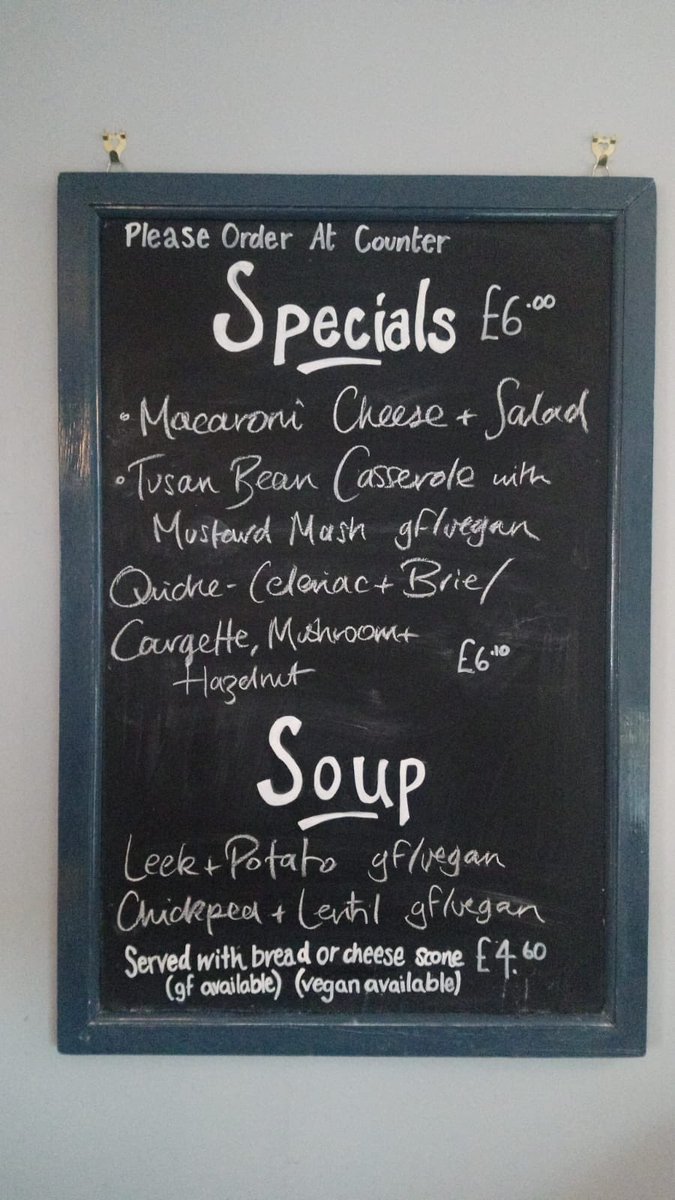 Please Order At Counter
Specials £6.00
• Macaroni Cheese + Salad
• Tusan Bean Casserole with
Mustard Mash gf/vegan
Quiche - Celeriac + Brie /
Courgette, Mushroom +
Hazelnut £6.10
Soup
Leek + Potato gf/vegan
Chickpea + Lentil gf/vegan
Served with bread or cheese scone £4.60
(gf available) (vegan available)